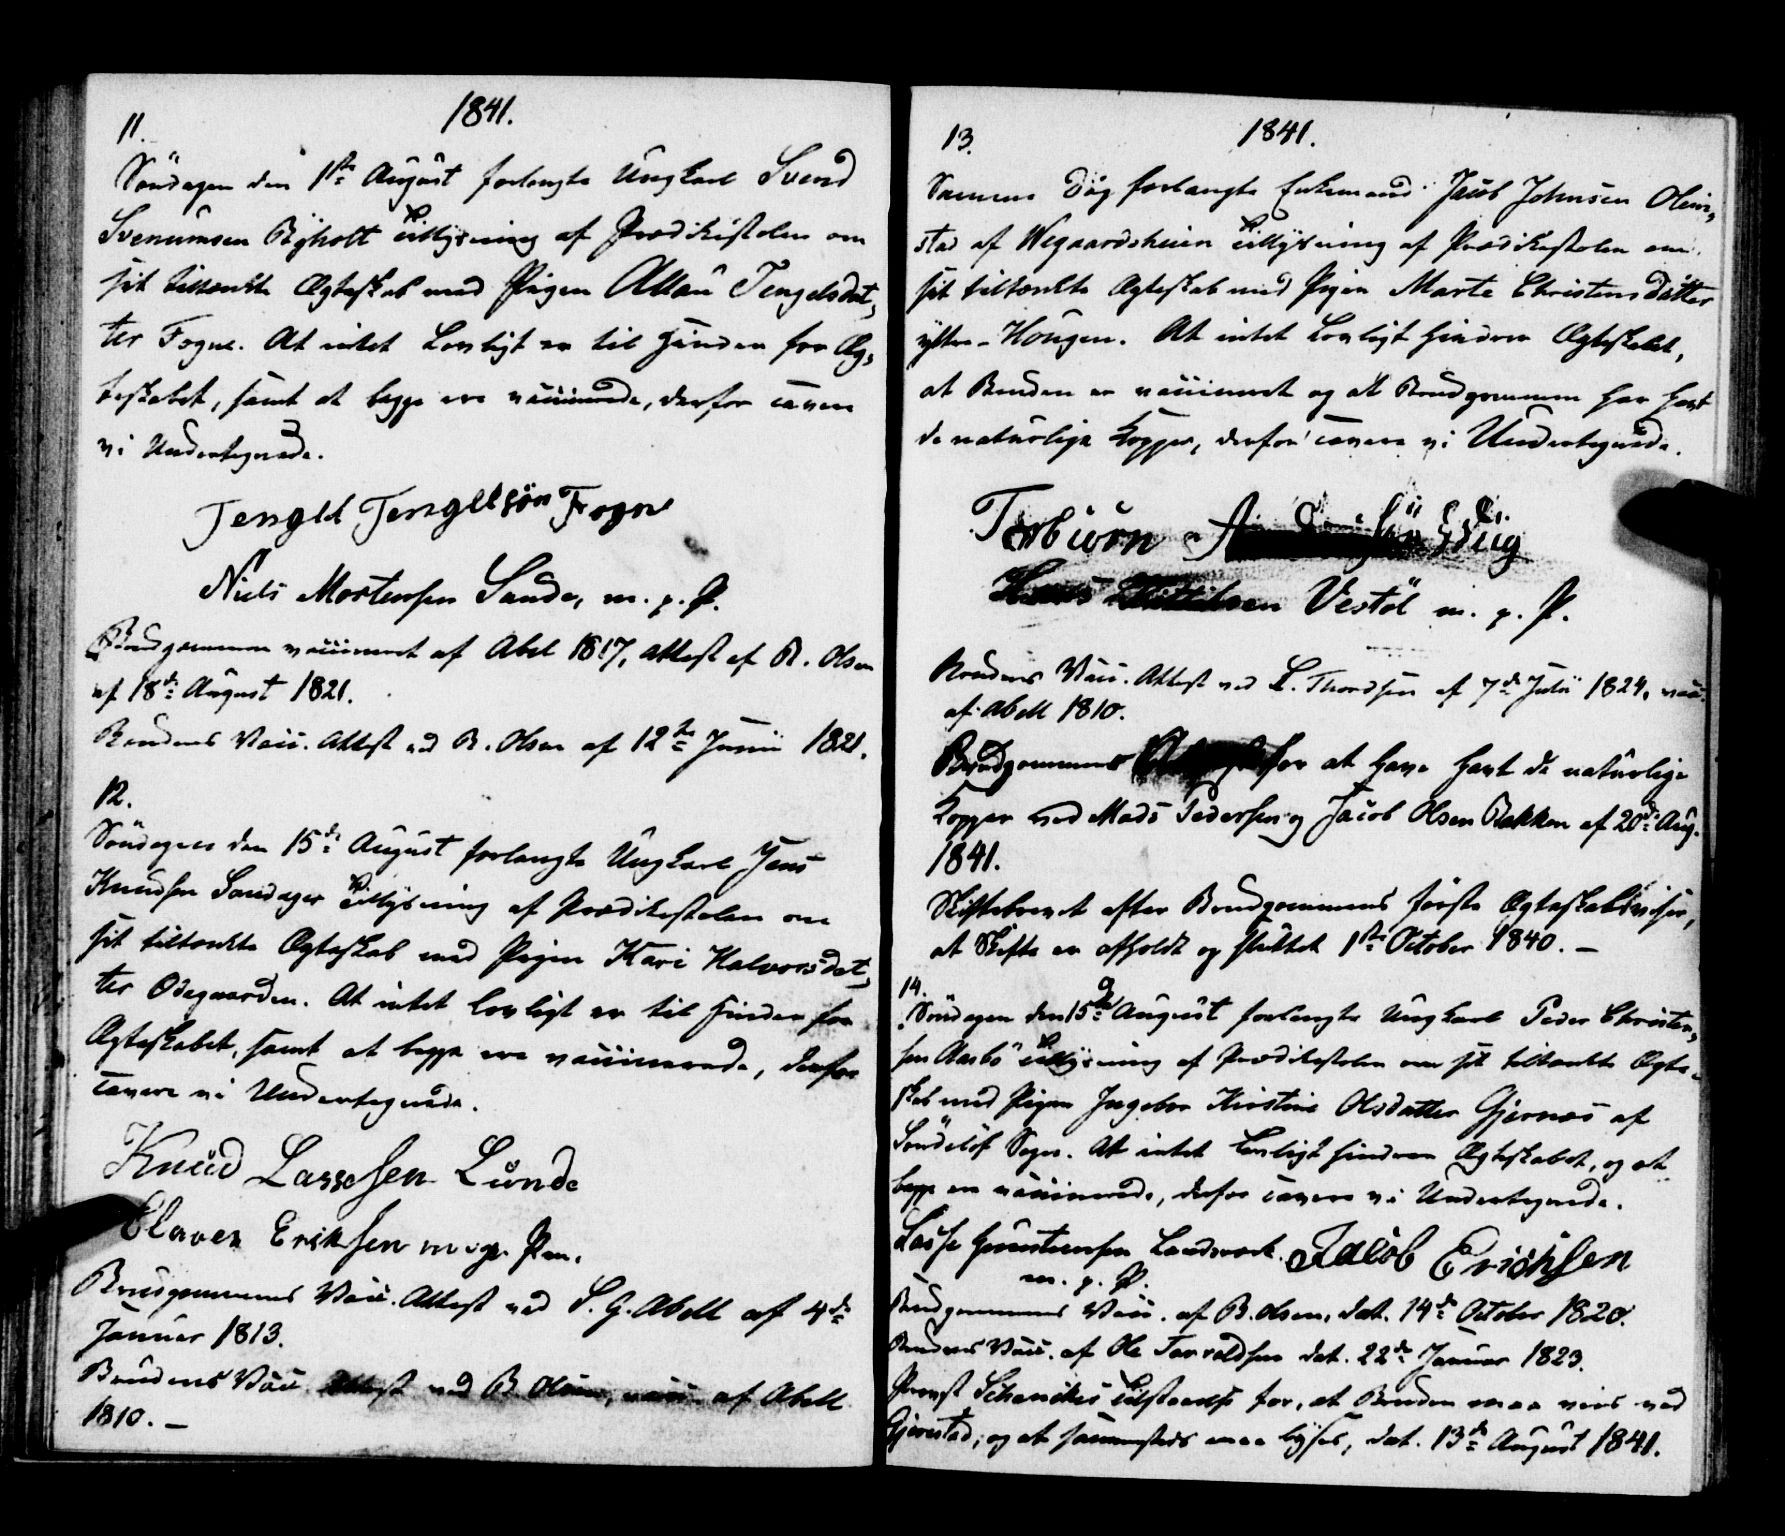 1841.
11.
Søndagen den 1ste August forlangte Ungkarl Svend
Svenumsen Ryholt Tillysning af Prædikestolen om
sit tiltænkte Ægteskab med Pigen Allau Tengelsdat,
ter Fogne. At intet Lovligt er til Hinder for Æg,
teskabet, samt at begge ere vaccinerede, derfor cavere
vi Undertegnede.
Tengel Tengelsøn Fogne
Niels Mortensen Sande, m. p. P.
Brudgommen vaccineret af Abel 1817, Attest af R. Olsen
af 18de August 1821.
Brudens Vacc. Attest ved R. Olsen af 12te Junii 1821.
12.
Søndagen den 15de August forlangte Ungkarl Jens
Knudsen Sandager Tillysning af Prædikestolen om
sit tiltænkte Ægteskab med Pigen Kari Halvorsdat,
ter Ødegaarden. At intet lovligt er til Hinder for
Ægteskabet, samt at begge ere vaccinerede, derfor
cavere vi Undertegnede.
Knud Lassesen Lunde
Elaver Eriksen m. p. Pen.
Brudgommens Vacc. Attest ved S. G. Abell af 4de
Januar 1813.
Brudens Vacc Attest ved B Olsen, vacc. af Abell
1810. —
1841.
13.
Samme Dag forlangte Enkemand Jacob Johnsen Olim,
stad af Wegaardsheien Tillysning af Prædikestolen om
sit tiltænkte Ægteskab med Pigen Marte Christensdatter
yttre-Hougen. At intet Lovligt hindrer Ægteskabet,
at Bruden er vaccineret og at Brudgommen har havt
de naturlige Kopper, derfor cavere vi Undertegnede.
Torbiørn
Vestøl m. p. P.
Brudens Vacc. Attest ved L. Thordsen af 7de Julii 1824, vacc.
af Abell 1810.
Brudgommens for at have havt de naturlige
Kopper ved Mads Pedersen og Jacob Olsen Bakken af 20de Aug.
1841.
Skiftebrevet efter Brudgommens første Ægteskab viser,
at Skifte er afholdt og sluttet 1ste October 1840. —
14.
Søndagen den 15de August forlangte Ungkarl Peder Christen,
sen Aasbø Tillysning af Prædikestolen om sit tiltænkte Ægte-
skab med Pigen Ingebor Kirstine Olsdatter Gjernæs af
Søndeløf Sogn. At intet Lovligt hindrer Ægteskabet, og at
begge er vaccinerede, derfor cavere vi Undertegnede.
Lasse Landværk. Jacob Erichsen
m. p. P.
Brudgommens Vacc. af B. Olsen, dat. 14de October 1820.
Brudens Vacc. af Ole Tarvaldsen dat. 22de Januar 1823.
Provst Schanckes Tilstaaelse for, at Bruden maa vies ved
Gjerrestad, og at sammesteds maa lyses, dat. 13de August 1841.